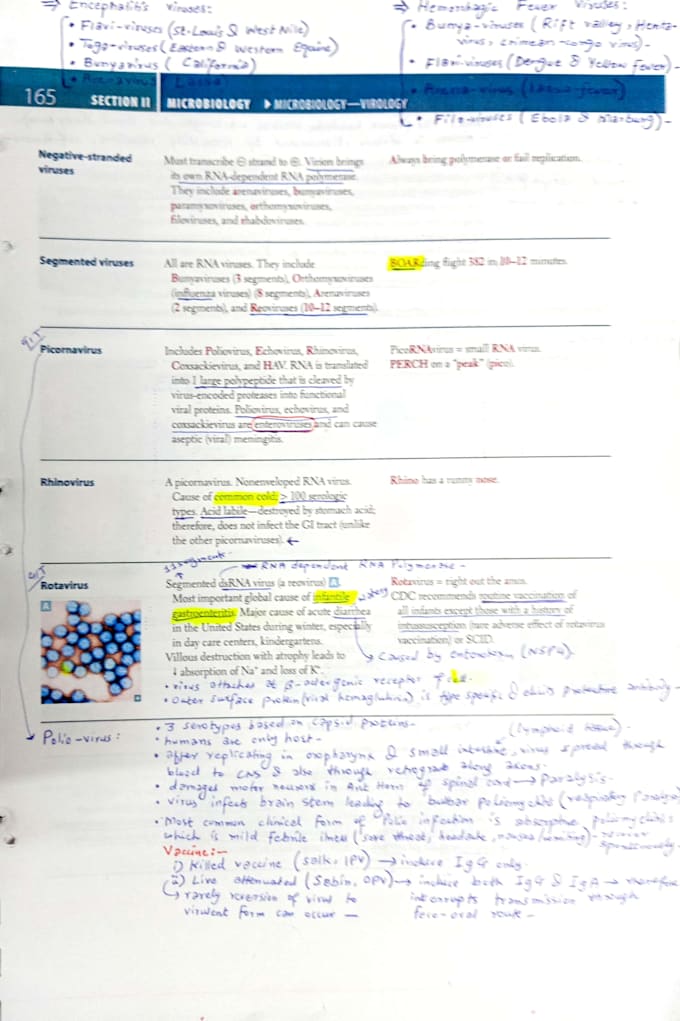 ⇒ Encephalitis viruses:
• Flavi-viruses (St-Louis & West Nile)
• Toga-viruses (Eastern & Western Equine)
• Bunyavirus ( California)
• Arenavirus Lassa
⇒ Hemorrhagic Fever Viruses:
• Bunya-viruses ( Rift valley, Hanta-
virus, crimean-congo virus)-
• Flavi-viruses (Dengue & Yellow fever)-
• Arena-virus (Lassa-fever)
• Filo-viruses (Ebola & Marburg)-
165 SECTION II MICROBIOLOGY ▶ MICROBIOLOGY—VIROLOGY
Negative-stranded
viruses
Must transcribe ⊖ strand to ⊕. Virion brings
its own RNA-dependent RNA polymerase.
They include arenaviruses, bunyaviruses,
paramyxoviruses, orthomyxoviruses,
filoviruses, and rhabdoviruses.
Always bring polymerase or fail replication.
Segmented viruses
All are RNA viruses. They include
Bunyaviruses (3 segments), Orthomyxoviruses
(influenza viruses) (8 segments), Arenaviruses
(2 segments), and Reoviruses (10–12 segments).
BOARding flight 382 in 10–12 minutes.
Picornavirus
Includes Poliovirus, Echovirus, Rhinovirus,
Coxsackievirus, and HAV. RNA is translated
into 1 large polypeptide that is cleaved by
virus-encoded proteases into functional
viral proteins. Poliovirus, echovirus, and
coxsackievirus are enteroviruses and can cause
aseptic (viral) meningitis.
PicoRNAvirus = small RNA virus.
PERCH on a "peak" (pico).
Rhinovirus
A picornavirus. Nonenveloped RNA virus.
Cause of common cold; > 100 serologic
types. Acid labile—destroyed by stomach acid;
therefore, does not infect the GI tract (unlike
the other picornaviruses). ←
Rhino has a runny nose.
11 segments-
→ RNA dependent RNA Polymerase -
Rotavirus
A
Segmented dsRNA virus (a reovirus) A.
Most important global cause of infantile
gastroenteritis. Major cause of acute diarrhea
in the United States during winter, especially
in day care centers, kindergartens.
Villous destruction with atrophy leads to
↓ absorption of Na⁺ and loss of K⁺.
Rotavirus = right out the anus.
CDC recommends routine vaccination of
all infants except those with a history of
intussusception (rare adverse effect of rotavirus
vaccination) or SCID.
→ Caused by enterotoxin (NSP4).
• virus attaches at β-adrenergic receptor of
• Outer surface protein (viral hemagglutinin) is type specific & elicits protective antibody -
Polio-virus :
• 3 serotypes based on capsid proteins-
• humans are only host- (lymphoid tissue)-
• after replicating in oropharynx & small intestine, virus spread through
blood to CNS & also through retrograde along axons.
• damages motor neurons in Ant Horn of spinal cord → Paralysis.
• virus infects brain stem leading to bulbar poliomyelitis (respiratory Paralysis)
• Most common clinical form of Polio infection is abortive poliomyelitis
which is mild febrile illness (sore throat, headache, nausea/vomiting)- recover
spontaneously-
Vaccine:-
1) Killed vaccine (Salk, IPV) → induce IgG only.
2) Live attenuated (Sabin, OPV) → induce both IgG & IgA → therefore
↳ rarely reversion of virus to interrupts transmission through
virulent form can occur — feco-oral route -